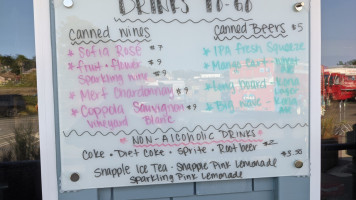 DRINKS TO-GO
Canned Wines
Canned Beers $5
* Sofia Rosé $7
* IPA Fresh Squeeze
* fruit + flower $9
sparkling wine
* Mango Cart
* Merf Chardonnay $9
* Long board - Kona
* Coppola Sauvignon $9
vineyard Blanc
* Big wave - Kona
NON-ALCOHOLIC DRINKS
Coke · Diet Coke · Sprite · Root beer $2
Snapple Ice Tea · Snapple Pink Lemonade $3.50
Sparkling Pink Lemonade